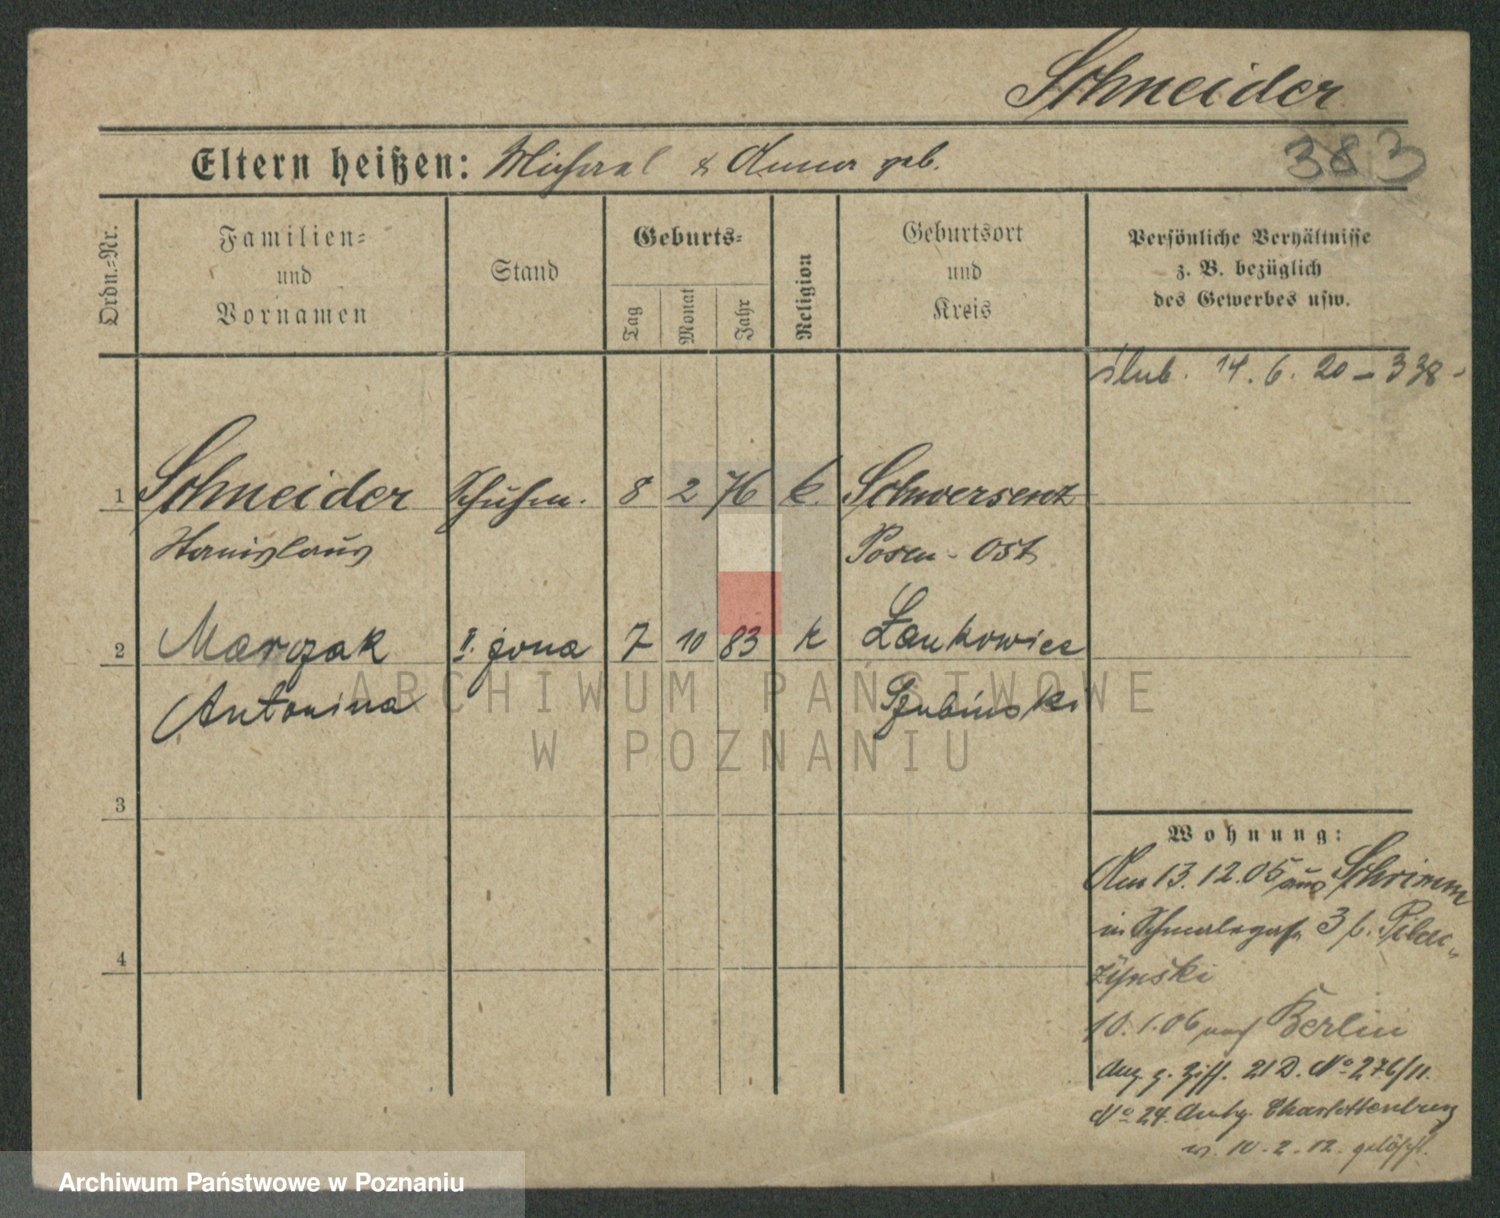 Schneider
383
Eltern heißen: Michael & Anna geb.
Ordn.-Nr.
Familien- und Vornamen
Stand
Geburts-
Tag
Monat
Jahr
Religion
Geburtsort und Kreis
Persönliche Verhältnisse
z. B. bezüglich
des Gewerbes usw.
ślub. 14. 6. 20 – 338 -
1 Schneider Schuhm. 8 2 76 k. Schwersenz
Stanislaus Posen - Ost
2 Marczak II. żona 7 10 83 k Żankowice
Antonina Szubiński
ARCHIWUM PAŃSTWOWE
W POZNANIU
3
Wohnung:
Am 13.12.05 aus Schrimm
in Schmalegasse 3 b. Pilac-
zynski
4
10.1.06 nach Berlin
Anz. g. Ziff. 21 D. No 276/11.
No 24. Charlottenburg
10.2.12. gelöscht.
Archiwum Państwowe w Poznaniu